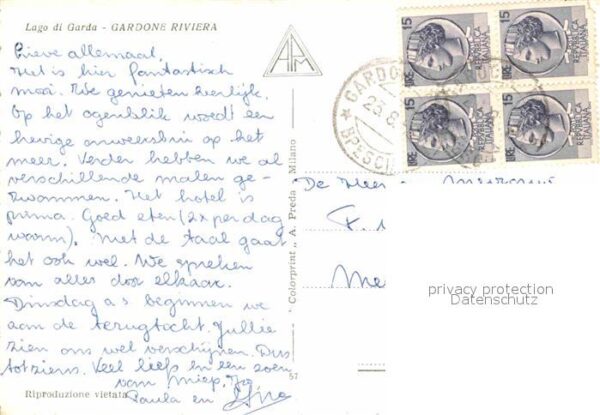 Lago di Garda - GARDONE RIVIERA
Lieve allemaal,
Het is hier fantastisch
mooi. We genieten heerlijk.
Op het ogenblik woedt een
hevige onweersbui op het
meer. Verder hebben we al
verschillende malen ge-
zwommen. Het hotel is
prima. Goed eten (2x per dag
warm). Met de taal gaat
het ook wel. We spreken
van alles door elkaar.
Dinsdag a.s. beginnen we
aan de terugtocht. Jullie
zien ons wel verschijnen. Dus
tot ziens. Veel liefs en een zoen
van Miep,
Paula en
Riproduzione vietata
57
Colorprint „ A. Preda „ Milano
APM
GARDONE
BRESCIA
15 LIRE
REPUBBLICA ITALIANA
15 LIRE
REPUBBLICA ITALIANA
15 LIRE
REPUBBLICA ITALIANA
15 LIRE
REPUBBLICA ITALIANA
De Heer
privacy protection
Datenschutz